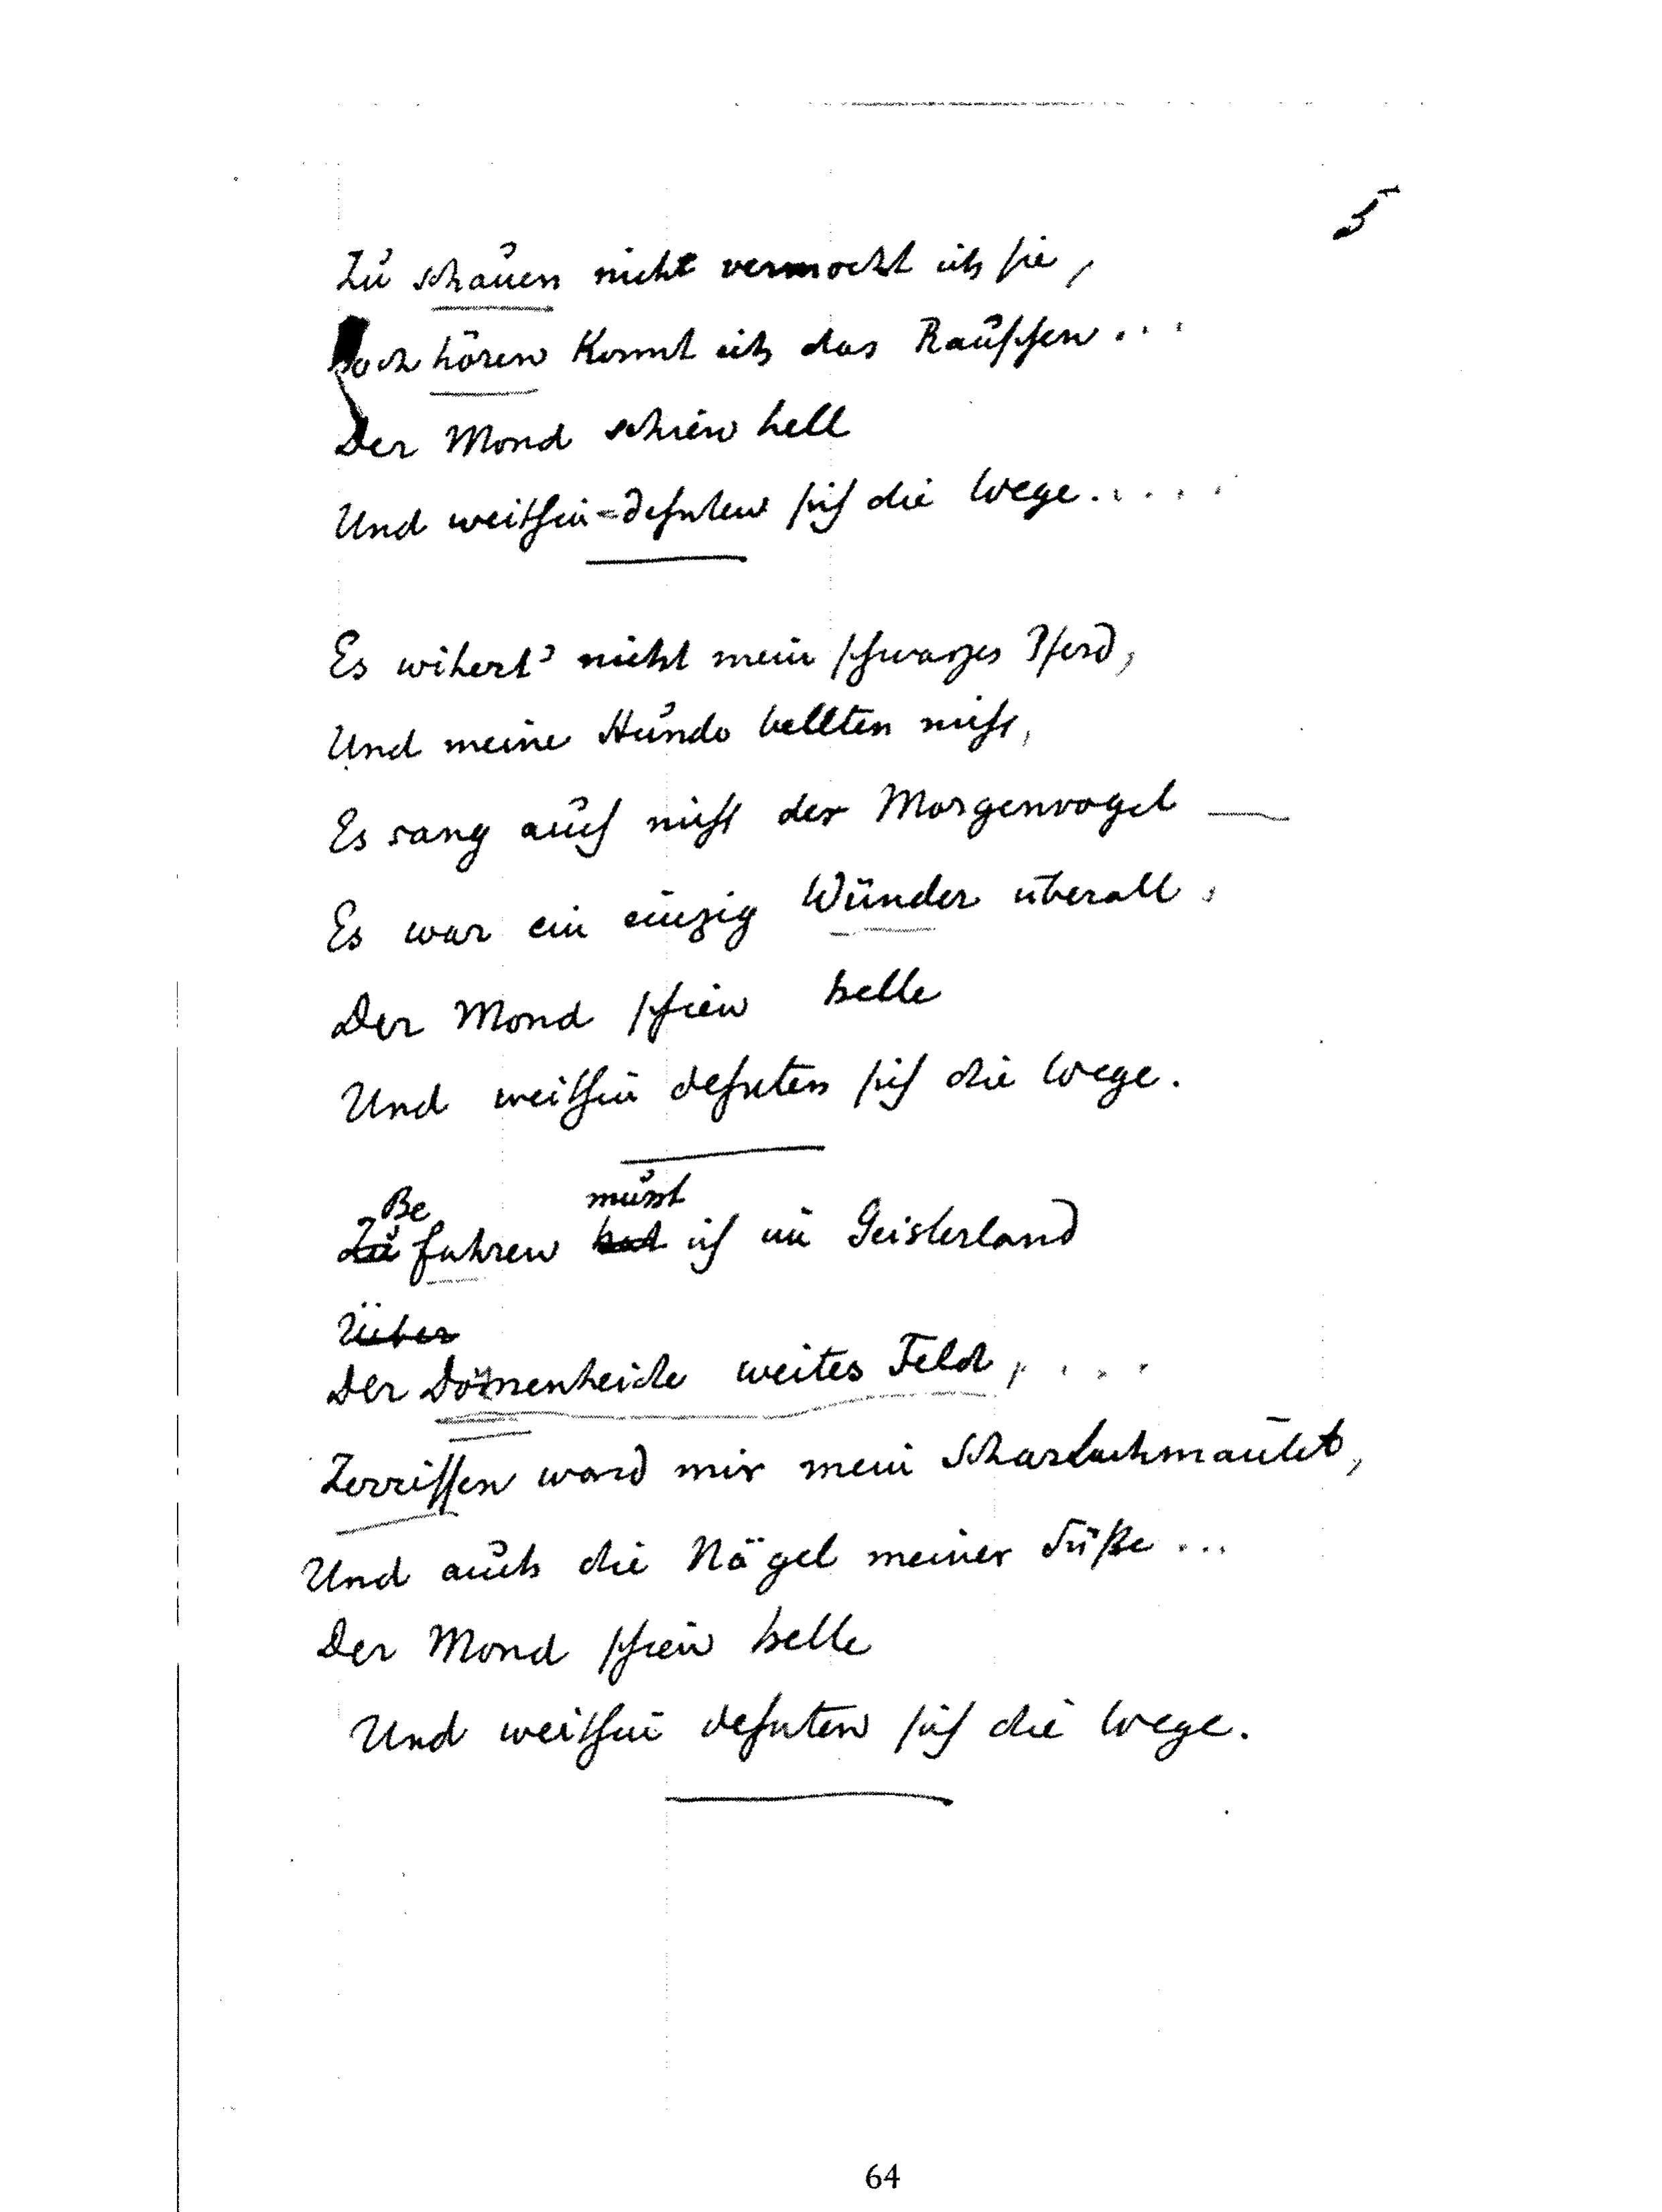 5
Zu schauen nicht vermocht ich sie,
Doch hören konnt ich das Rauschen...
Der Mond schien hell
Und weithin-dehnten sich die Wege.....
Es wihert' nicht mein schwarzes Pferd,
Und meine Hunde bellten nicht,
Es sang auch nicht der Morgenvogel —
Es war ein einzig Wunder überall,
Der Mond schien helle
Und weithin dehnten sich die Wege.
Be musst
Zu fahren hat ich im Geisterland
Über
Der Dornenheide weites Feld, ...
Zerrissen ward mir mein Scharlachmantel,
Und auch die Nägel meiner Füße...
Der Mond schien helle
Und weithin dehnten sich die Wege.
64